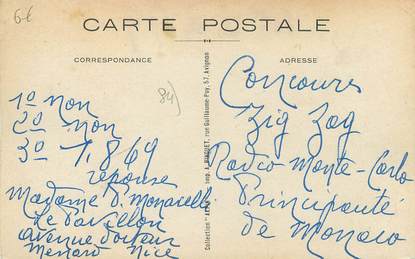 6€
CARTE POSTALE
CORRESPONDANCE
ADRESSE
84)
1º non
2º non
3º 7.869
réponse
Madame D. Monacelli
Le Pavillon
avenue docteur
Menard Nice
Collection "APA" Imp. A. , rue Guillaume-Puy, 57, Avignon
Concours
Zig Zag
Radio-Monte-Carlo
Principauté
de Monaco